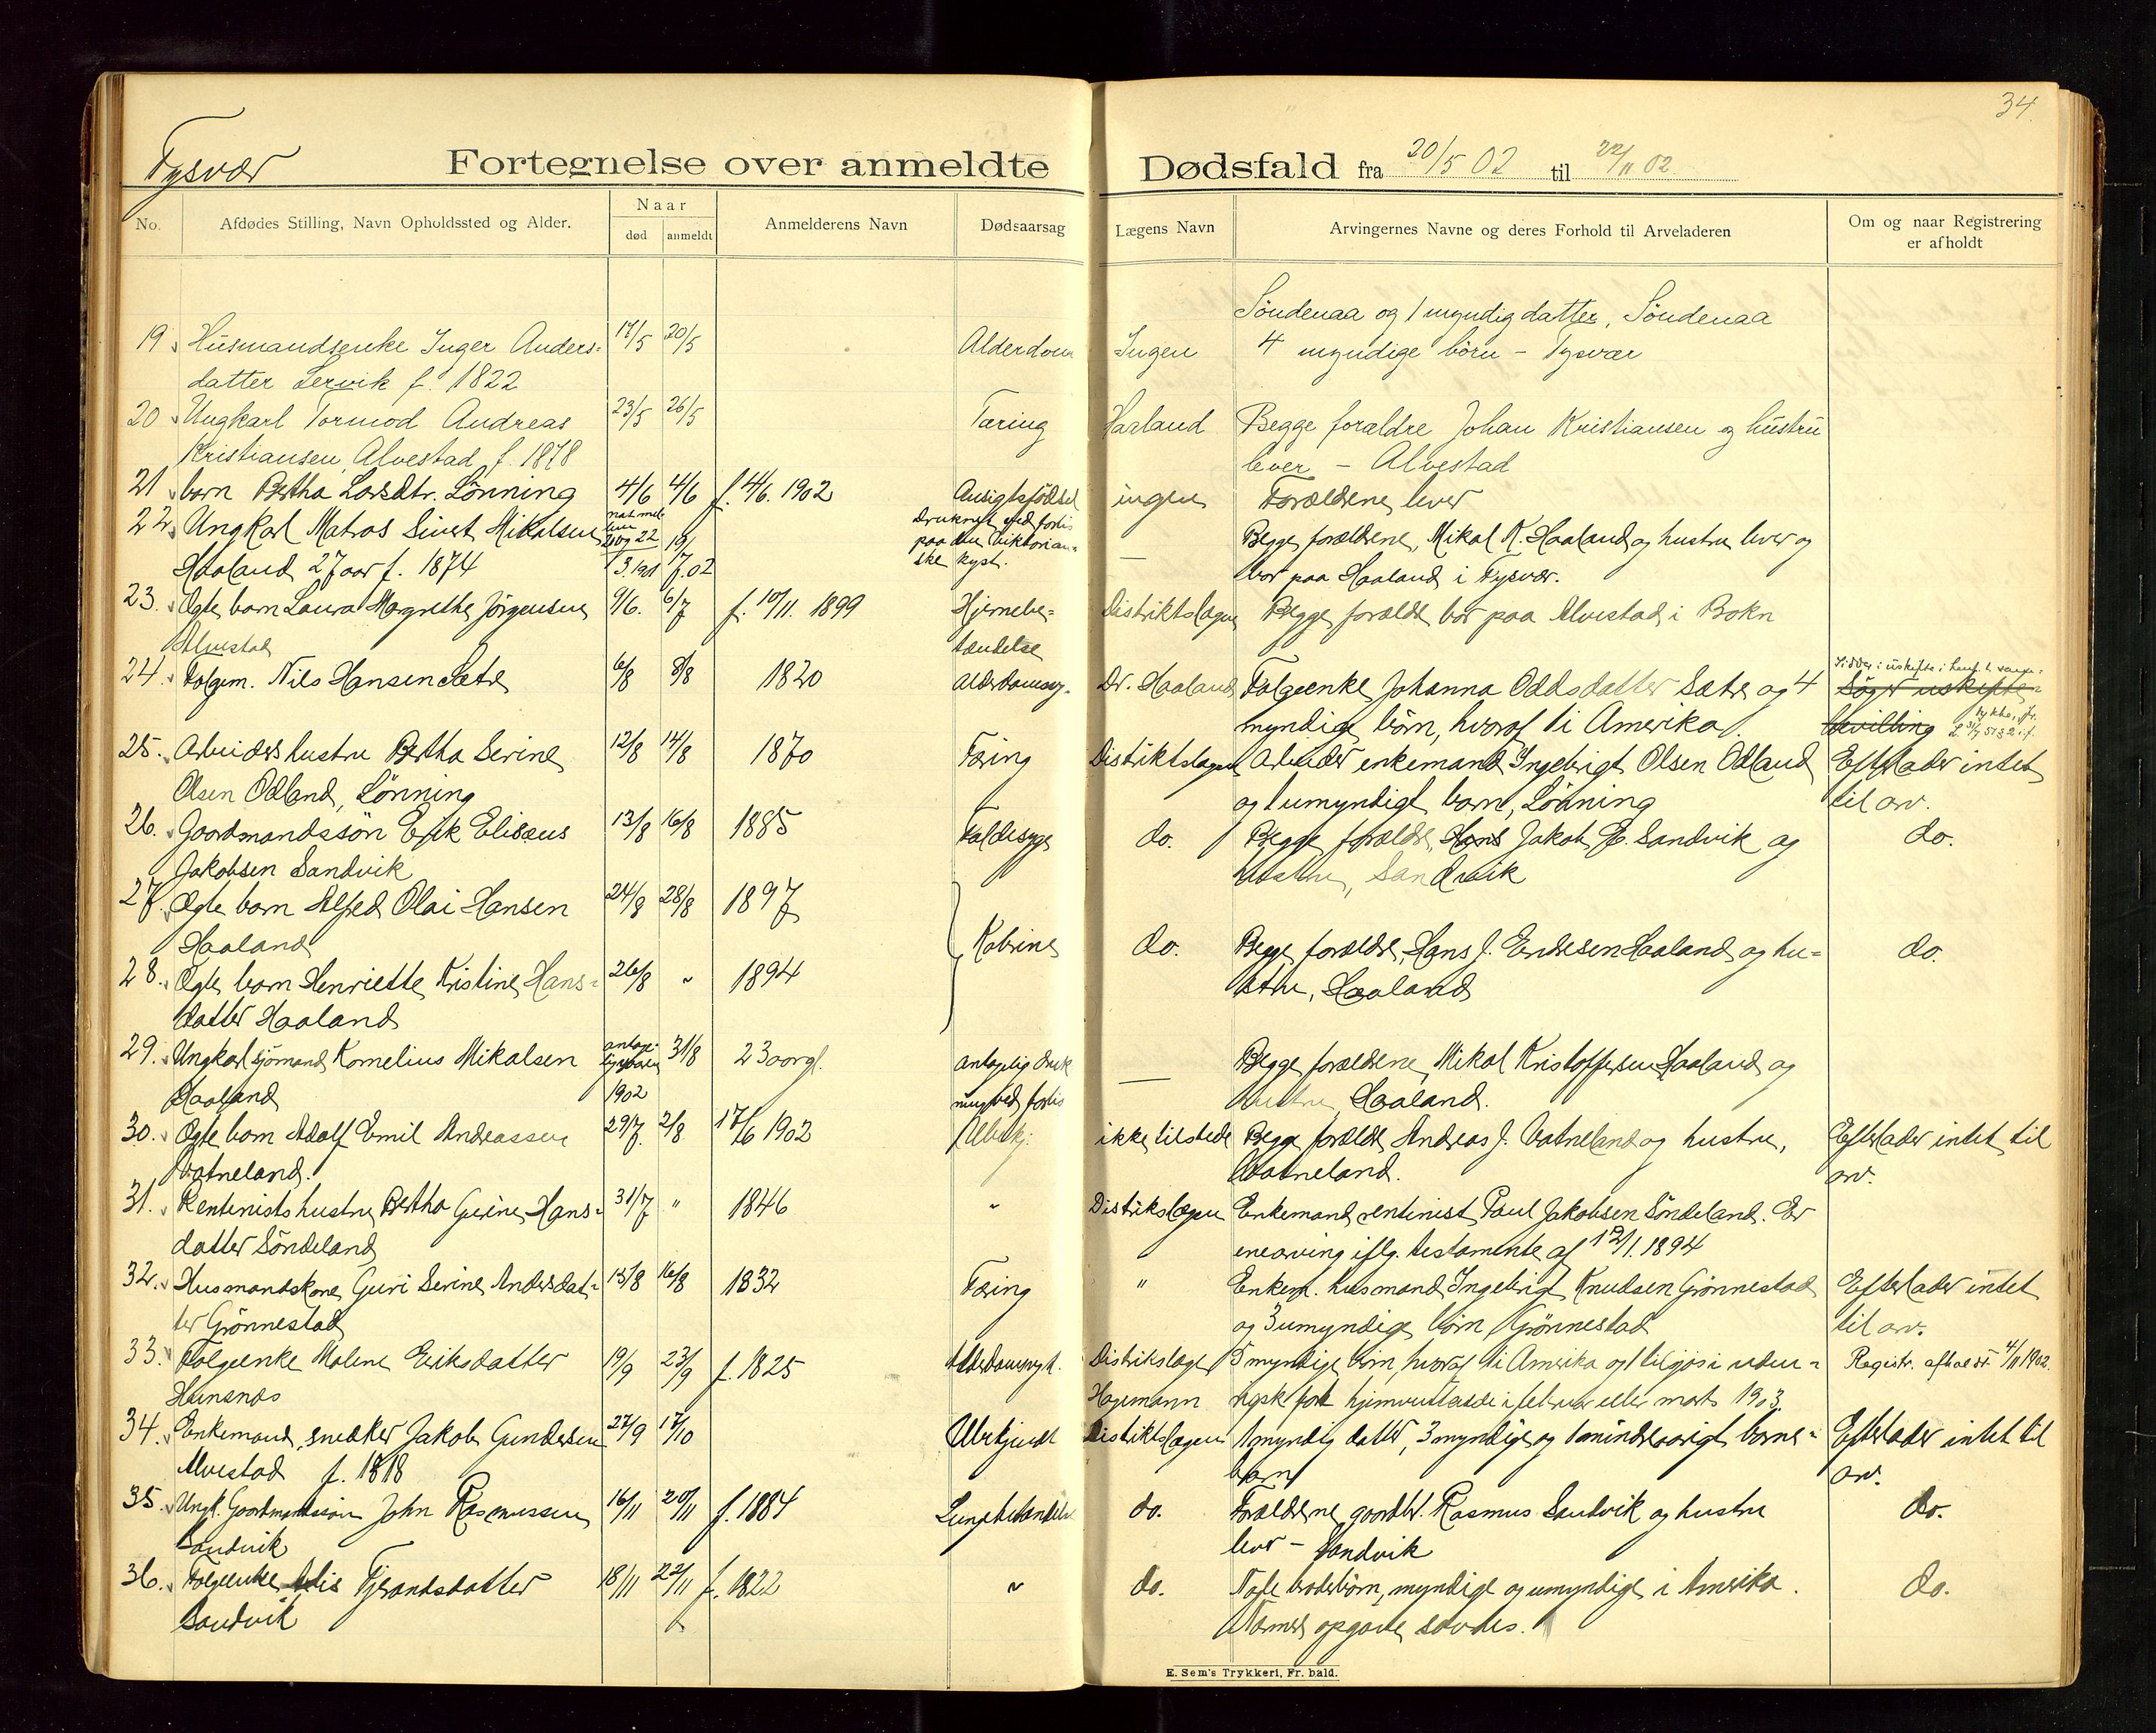 34
Tysvær
Fortegnelse over anmeldte Dødsfald fra 20/5 02 til 22/11 02
No. Afdødes Stilling, Navn Opholdssted og Alder. Naar død anmeldt Anmelderens Navn Dødsaarsag Lægens Navn Arvingernes Navne og deres Forhold til Arveladeren Om og naar Registrering er afholdt
Söndenaa og 1 myndig datter, Söndenaa
19 Husmandsenke Inger Anders- 17/5 20/5 Alderdom Ingen 4 myndige börn - Tysvær
datter Lervik f. 1822
20 Ungkarl Tormod Andreas 23/5 26/5 Tæring Haaland Begge forældre Johan Kristiansen og hustru
Kristiansen, Alvestad f. 1878 lever - Alvestad
21 barn Bertha Larsdtr. Lönning 4/6 4/6 f. 4/6. 1902 Ansigtsfödsel ingen Forældrene lever
22 Ungkarl Matros Sivert Mikalsen druknet ved forlis Begge forældrene, Mikal K. Haaland og hustru lever og
Haaland 27 aar f. 1874 paa den viktorianske kyst. — bor paa Haaland i Tysvær.
23. Ægte barn Laura Margrethe Jörgensen 9/6. 6/7 f. 10/11. 1899 Hjernebe- Distriktslægen Begge forældre bor paa Alvestad i Bokn
Alvestad tændelse
24. Folgem. Nils Hansen Sætre 6/8 8/8 1820 Alderdomssv. Dr. Haaland Folgeenke Johanna Oddsdatter Sætre og 4 Söger uskifte-
myndige börn, hvoraf 1 i Amerika. bevilling
25. Arbeiders hustru Bertha Serine 12/8 14/8 1870 Tæring Distriktslægen Arbeider enkemand Ingebrigt Olsen Odland Efterlader intet
Olsen Odland, Lönning og 1 umyndigt barn, Lönning til arv.
26. Gaardmandssön Erik Elisæus 13/8 16/8 1885 Faldesyge do. Begge forældre, Hans Jakob E. Sandvik og do.
Jakobsen Sandvik hustru, Sandvik
27. Ægte barn Alfred Olai Hansen 24/8 28/8 1897
Haaland Kolerine do. Begge forældre, Hans J. Endresen Haaland og hu- do.
28. Ægte barn Henriette Kristine Hans- 26/8 " 1894 stru, Haaland
datter Haaland
29. Ungkarl sjömand Kornelius Mikalsen 31/8 23 aar gl. antagelig druk — Begge forældrene, Mikal Kristoffersen Haaland og
Haaland 1902 ning ved forlis hustru, Haaland.
30. Ægte barn Adolf Emil Andreassen 29/7. 2/8 17/6 1902 Ubekj. ikke tilstede Begge forældre Andreas J. Vatneland og hustru, Efterlader intet til
Vatneland. Vatneland. arv.
31. Rentenists hustru Bertha Gurine Hans- 31/7 " 1846 " Distriktslægen Enkemand rentenist Paul Jakobsen Söndeland. Er
datter Söndeland enearving iflg. testamente af 12/1. 1894
32. Husmandskone Guri Serine Andersdat- 13/8 16/8 1832 Tæring " Enkem. husmand Ingebrigt Knudsen Grönnestad Efterlader intet
ter Grönnestad og 3 umyndige börn Grönnestad til arv.
33. Folgeenke Malene Eriksdatter 19/9 23/9 f. 1825 Alderdomssvgh. Distriktslæge 5 myndige börn, hvoraf 1 i Amerika og 1 tilsjös i uden- Registr. afholdt 4/11 1902.
Hunsnæs Hagemann rigsk fart hjemventendes i februar eller marts 1903.
34. Enkemand, snedker Jakob Gundersen 27/9 17/10 Ubekjendt Distriktslægen 1 myndig datter, 3 myndige og 1 mindreaarigt barne- Efterlader intet til
Alvestad f. 1818 barn arv.
35. Ungk. Gaardmandssön John Rasmussen 16/11 20/11 f. 1884 Lungebetændelse do. Forældrene, gaardbr. Rasmus Sandvik og hustru do.
Sandvik lever - Sandvik
36. Folgeenke Tjerandsdatter 18/11 22/11 f. 1822 " do. Nogle broderbörn, myndige og umyndige i Amerika. do.
Sandvik Nærmere opgave savnes.
E. Sem's Trykkeri, Fr. hald.